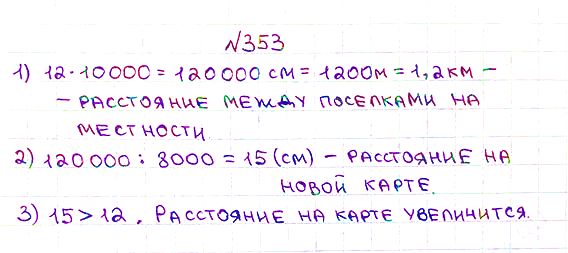 №353
1) 12·10000 = 120000 см = 1200м = 1,2км –
– расстояние между поселками на
местности.
2) 120000 : 8000 = 15 (см) – расстояние на
новой карте.
3) 15 > 12, Расстояние на карте увеличится.